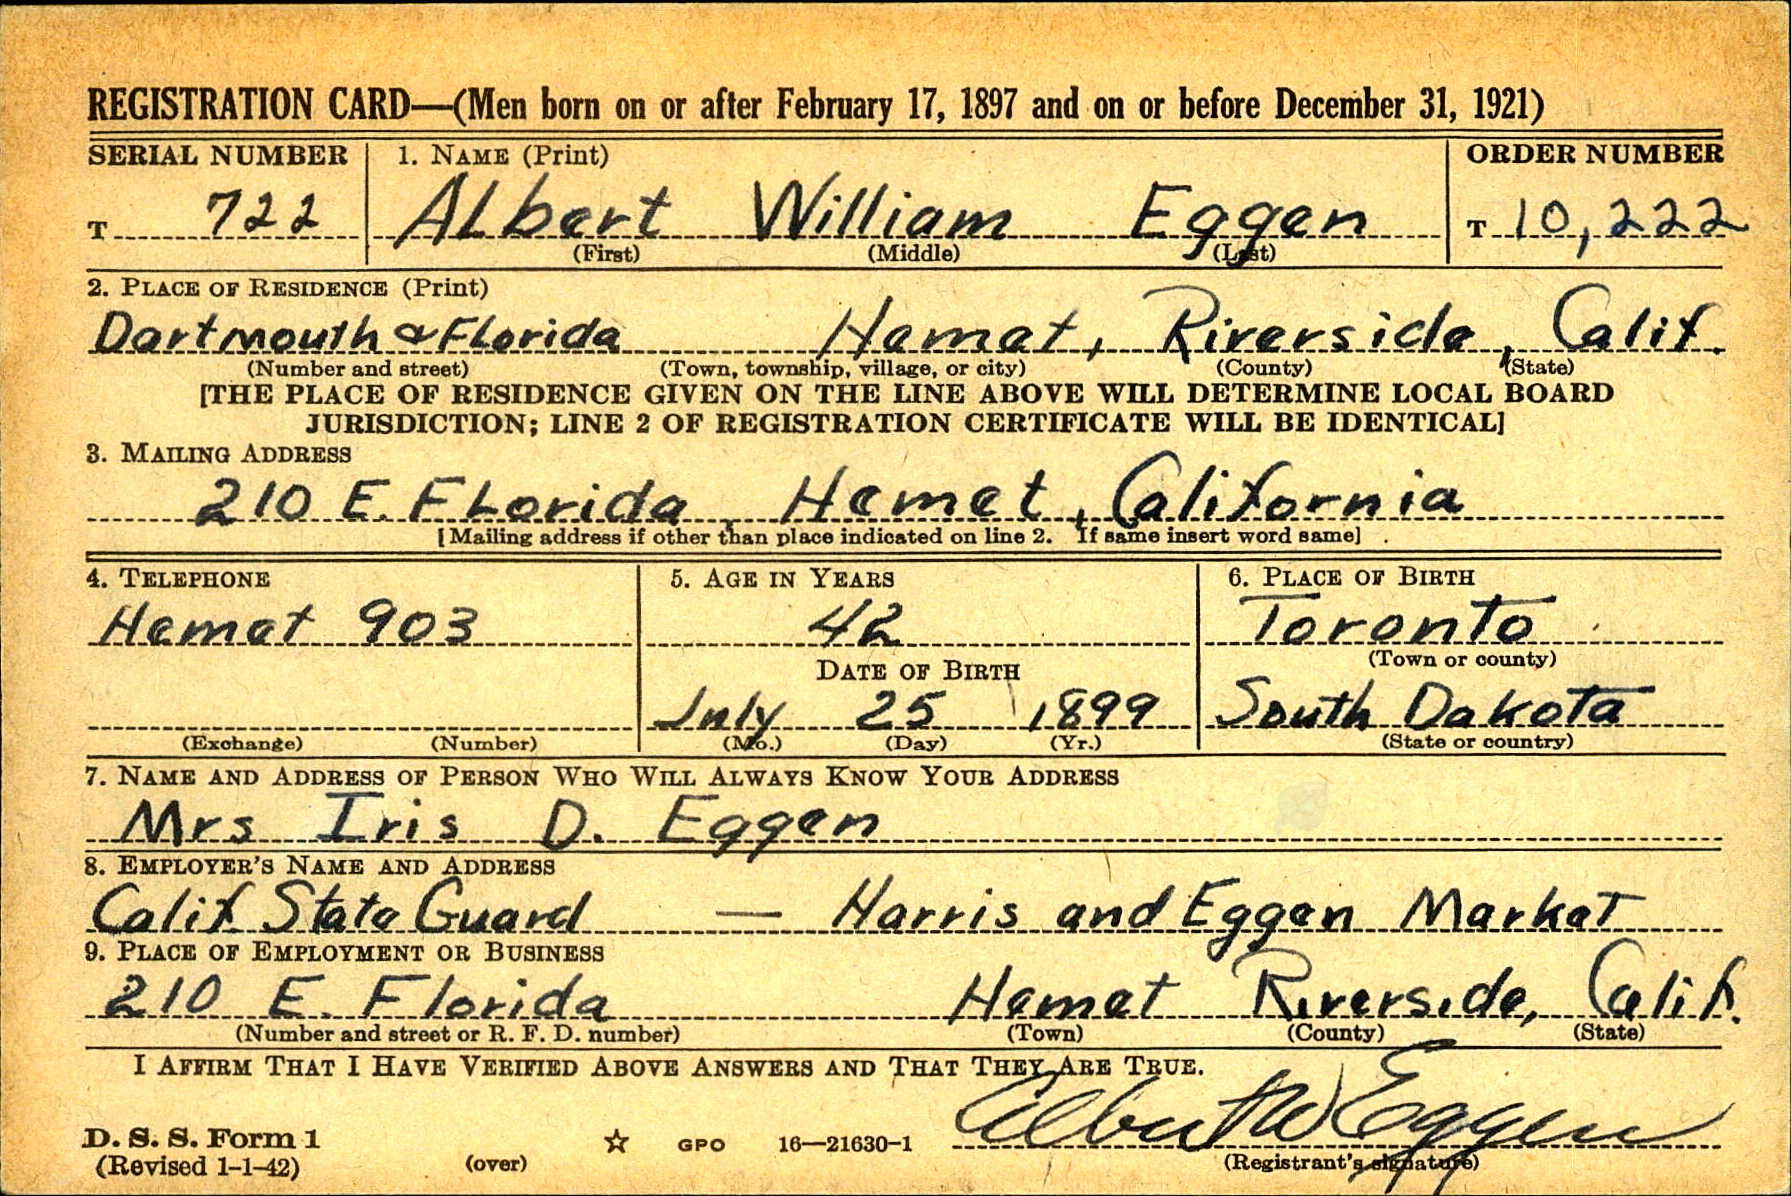 REGISTRATION CARD—(Men born on or after February 17, 1897 and on or before December 31, 1921)
SERIAL NUMBER 1. NAME (Print) ORDER NUMBER
T 722 Albert William Eggen T 10,222
(First) (Middle) (Last)
2. PLACE OF RESIDENCE (Print)
Dartmouth & Florida Hemet, Riverside, Calif.
(Number and street) (Town, township, village, or city) (County) (State)
[THE PLACE OF RESIDENCE GIVEN ON THE LINE ABOVE WILL DETERMINE LOCAL BOARD
JURISDICTION; LINE 2 OF REGISTRATION CERTIFICATE WILL BE IDENTICAL]
3. MAILING ADDRESS
210 E. Florida, Hemet, California
[Mailing address if other than place indicated on line 2. If same insert word same]
4. TELEPHONE 5. AGE IN YEARS 6. PLACE OF BIRTH
Hemet 903 42 Toronto
(Town or county)
DATE OF BIRTH
July 25 1899 South Dakota
(Exchange) (Number) (Mo.) (Day) (Yr.) (State or country)
7. NAME AND ADDRESS OF PERSON WHO WILL ALWAYS KNOW YOUR ADDRESS
Mrs Iris D. Eggen
8. EMPLOYER'S NAME AND ADDRESS
Calif State Guard — Harris and Eggen Market
9. PLACE OF EMPLOYMENT OR BUSINESS
210 E. Florida Hemet Riverside, Calif.
(Number and street or R. F. D. number) (Town) (County) (State)
I AFFIRM THAT I HAVE VERIFIED ABOVE ANSWERS AND THAT THEY ARE TRUE.
Albert W Eggen
D. S. S. Form 1
(Revised 1-1-42) (over) ☆ GPO 16—21630-1 (Registrant's signature)